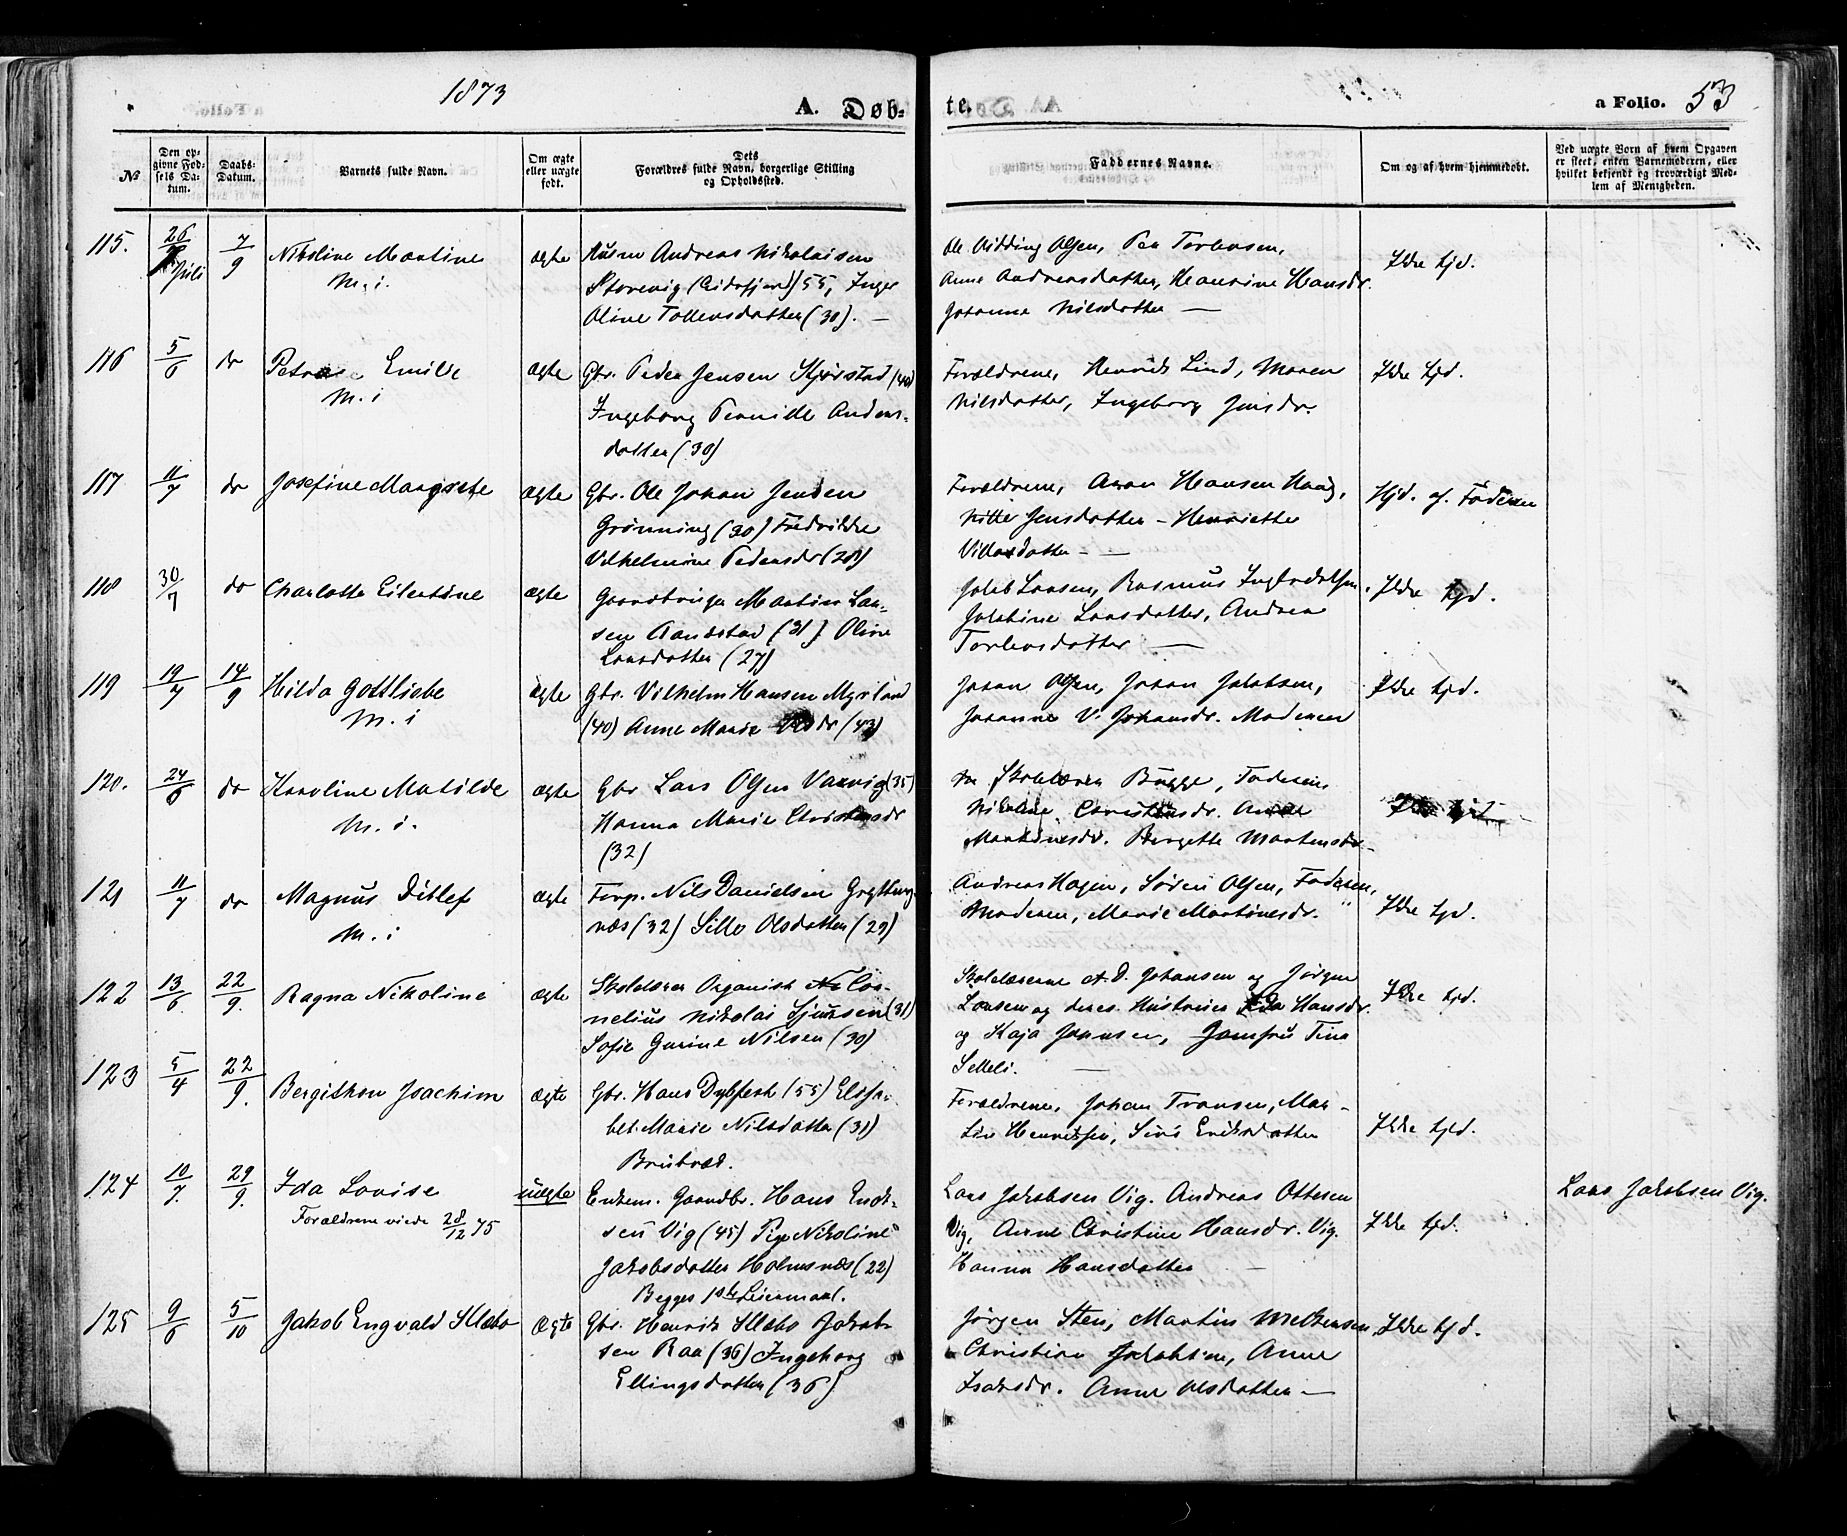 1873
A. Døb-
te.
a Folio. 53
№
Den op-
givne Fød-
sels Da-
tum.
Daabs-
Datum.
Barnets fulde Navn.
Om ægte
eller uægte
født.
Dets
Forældres fulde Navn, borgerlige Stilling
og Opholdssted.
Faddernes Navne.
Om og af hvem hjemmedøbt.
Ved uægte Børn af hvem Opgaven
er skeet, enten Barnemoderen, eller
hvilket bekjendt og troværdigt Med-
lem af Menigheden.
115. 26 Juli 7/9 Nikoline Martine ægte Andreas Nikolaisen
M. i. Storevig (Eidsfjord) 55, Inger
Oline Tollevsdatter (30). —
Ole Olsen, Per Torlevsen,
Anne Andreasdatter, Hansine Hansdr.
Johanne Nilsdatter —
Ikke hjd.
116 5/6 do Petra Emilie ægte Gbr. Peder Jensen Skjørstad (40)
M. i Ingeborg Pernille Anders-
datter (30)
Forældrene, Henrik Lind, Maren
Nilsdatter, Ingeborg Jensdr.
Ikke hjd.
117 11/7 do Josefine Margrete ægte Gbr. Ole Johan Jensen
Grønning (30) Fredrikke
Vilhelmine Pedersdr (28)
Forældrene, Aron Hansen Haug,
Jensdatter – Henriette
—
Hjd. af Faderen
118 30/7 do Charlotte Eilertine ægte Gaardbruger Martin Lar-
sen Sandstad (31) Oline
Larsdatter (27)
Jakob Larsen, Rasmus
Jakobine Larsdatter, Andrea
Torlevsdatter —
Ikke hjd.
119 19/7 14/9 Hilda Gottliebe ægte Gbr. Vilhelm Hansen Myrland
M. i (40) Anne Marie (43)
Johan Olsen, Johan Jakobsen,
Johanne V. Johansdr. Moderen
Ikke hjd.
120. 24/6 do Karoline Matilde ægte Gbr Lars Olsen (35)
M. i. Hanna Marie
(32)
Skolelærer Bugge, Faderen,
Nikoline Christensdr. Anne
Martinesdr. Bergette Martinsdr.
Ikke hjd
121 11/7 do Magnus Ditlef ægte Forp. Nils Danielsen Grytting-
M. i næs (32) Olsdatter (29)
Andreas Hagen, Søren Olsen, Faderen,
Moderen, Marie Martinesdr.
Ikke hjd.
122 13/6 22/9. Ragna Nikoline ægte Skolelærer Organist Cor-
nelius Nikolai Sjursen (31)
Sofie Gurine Nilsen (30)
Skolelærerne A. D. Johansen og Jørgen
Larsen og deres Hustruer Ida Hansdr.
og Kaja Johnsen, Jomfru Tina
Ikke hjd.
123 5/4 22/9. Bergithon Joachim ægte Gbr. Hans Dybfest (55) Elisa-
bet Marie Nilsdatter (31)
Forældrene, Johan Transen, Mar-
tin Henriksen, Eriksdatter
Ikke hjd.
124 10/7. 29/9. Ida Lovise uægte Enkem. Gaardbr. Hans Erik-
Forældrene viede 28/12 75 sen Vig (45) Pige Nikoline
Jakobsdatter Holmsnæs (22)
Begges 1ste Leiermaal.
Lars Jakobsen Vig. Andreas Ottesen
Vig, Anne Christine Hansdr. Vig.
Hanna Hansdatter —
Ikke hjd.
Lars Jakobsen Vig.
125 9/6 5/10 Jakob Engvald Slæbo Ægte Gbr. Henrik Slæbo Jakob-
sen Raa (36) Ingeborg
Ellingsdatter (36)
Jørgen Sten, Martin Meltzersen
Christian Jakobsen, Anne
Isaksdr. Anne Olsdatter —
Ikke hjd.